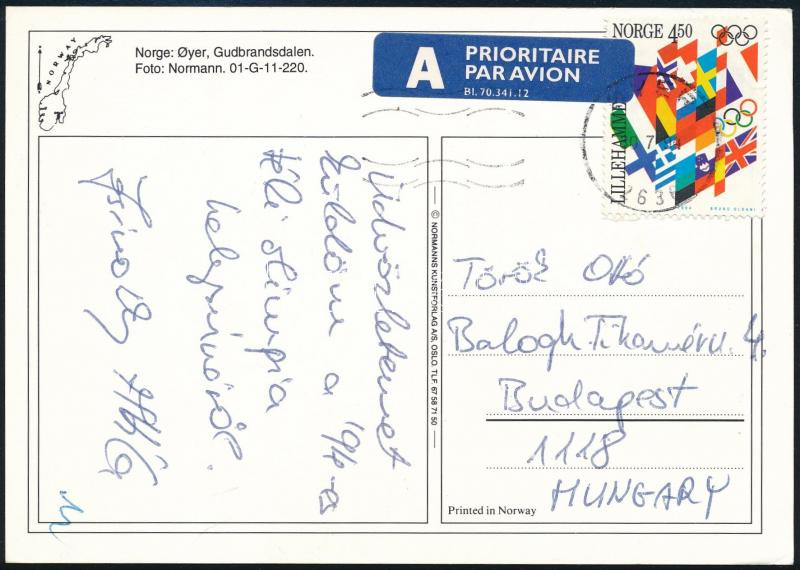 NORWAY
Norge: Øyer, Gudbrandsdalen.
Foto: Normann. 01-G-11-220.
A
PRIORITAIRE
PAR AVION
Bl. 70.341.12
NORGE 4,50
LILLEHAMMER
BRUNO OLDANI
263
Üdvözletemet
küldöm a 1994-es
téli olimpia
helyszínéről.
© NORMANNS KUNSTFORLAG A/S, OSLO. TLF. 67 58 71 50
Török Ottó
Balogh Tihamér u. 4.
Budapest
1118
HUNGARY
Printed in Norway